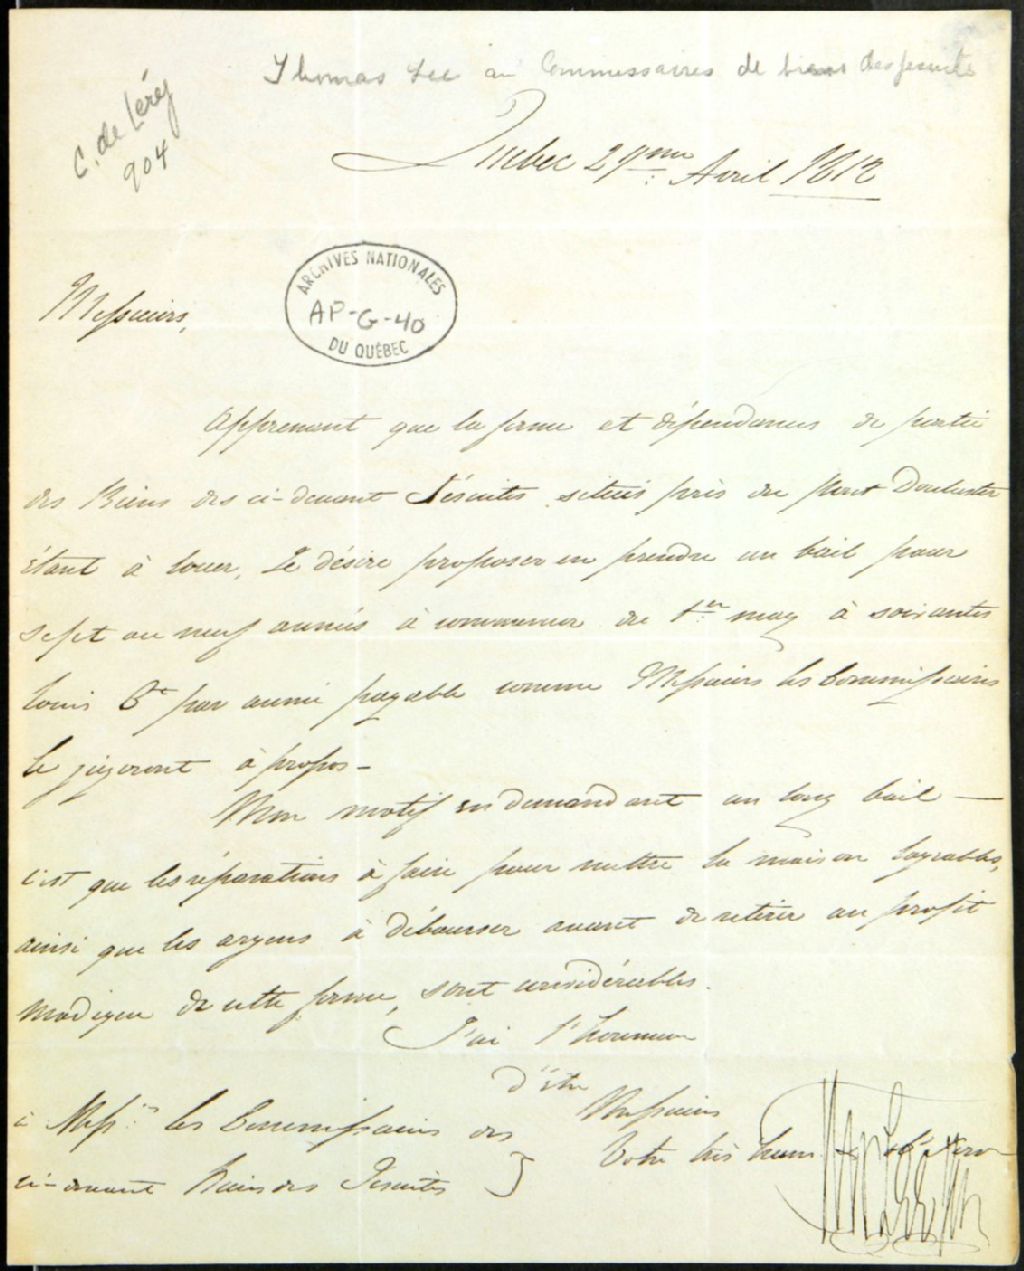 Thomas Lee au Commissaires de biens des Jesuites
C. de Léry
904
Quebec 29me Avril 1812
ARCHIVES NATIONALES
AP-G-40
DU QUÉBEC
Messieurs,
Apprenant que la ferme et dépendances de partie
des Biens des ci-devant Jésuites situés près du pont Dorchester
étant à louer, Je désire proposer en prendre un bail pour
sept ou neuf années à commencer du 1er may à soixantes
louis par année payable comme Messieurs les Commissaires
le jugeront à propos –
Mon motif en demandant un long bail –
c'est que les réparations à faire pour mettre la maison logeables,
ainsi que les argens à débourser avant de retirer un profit
modique de cette ferme, sont considérables.
J'ai l'honneur
d'être
Messieurs
à Messrs les Commissaires des
Votre très hum & obt serv
ci-devant Biens des Jesuites
Thos Lee